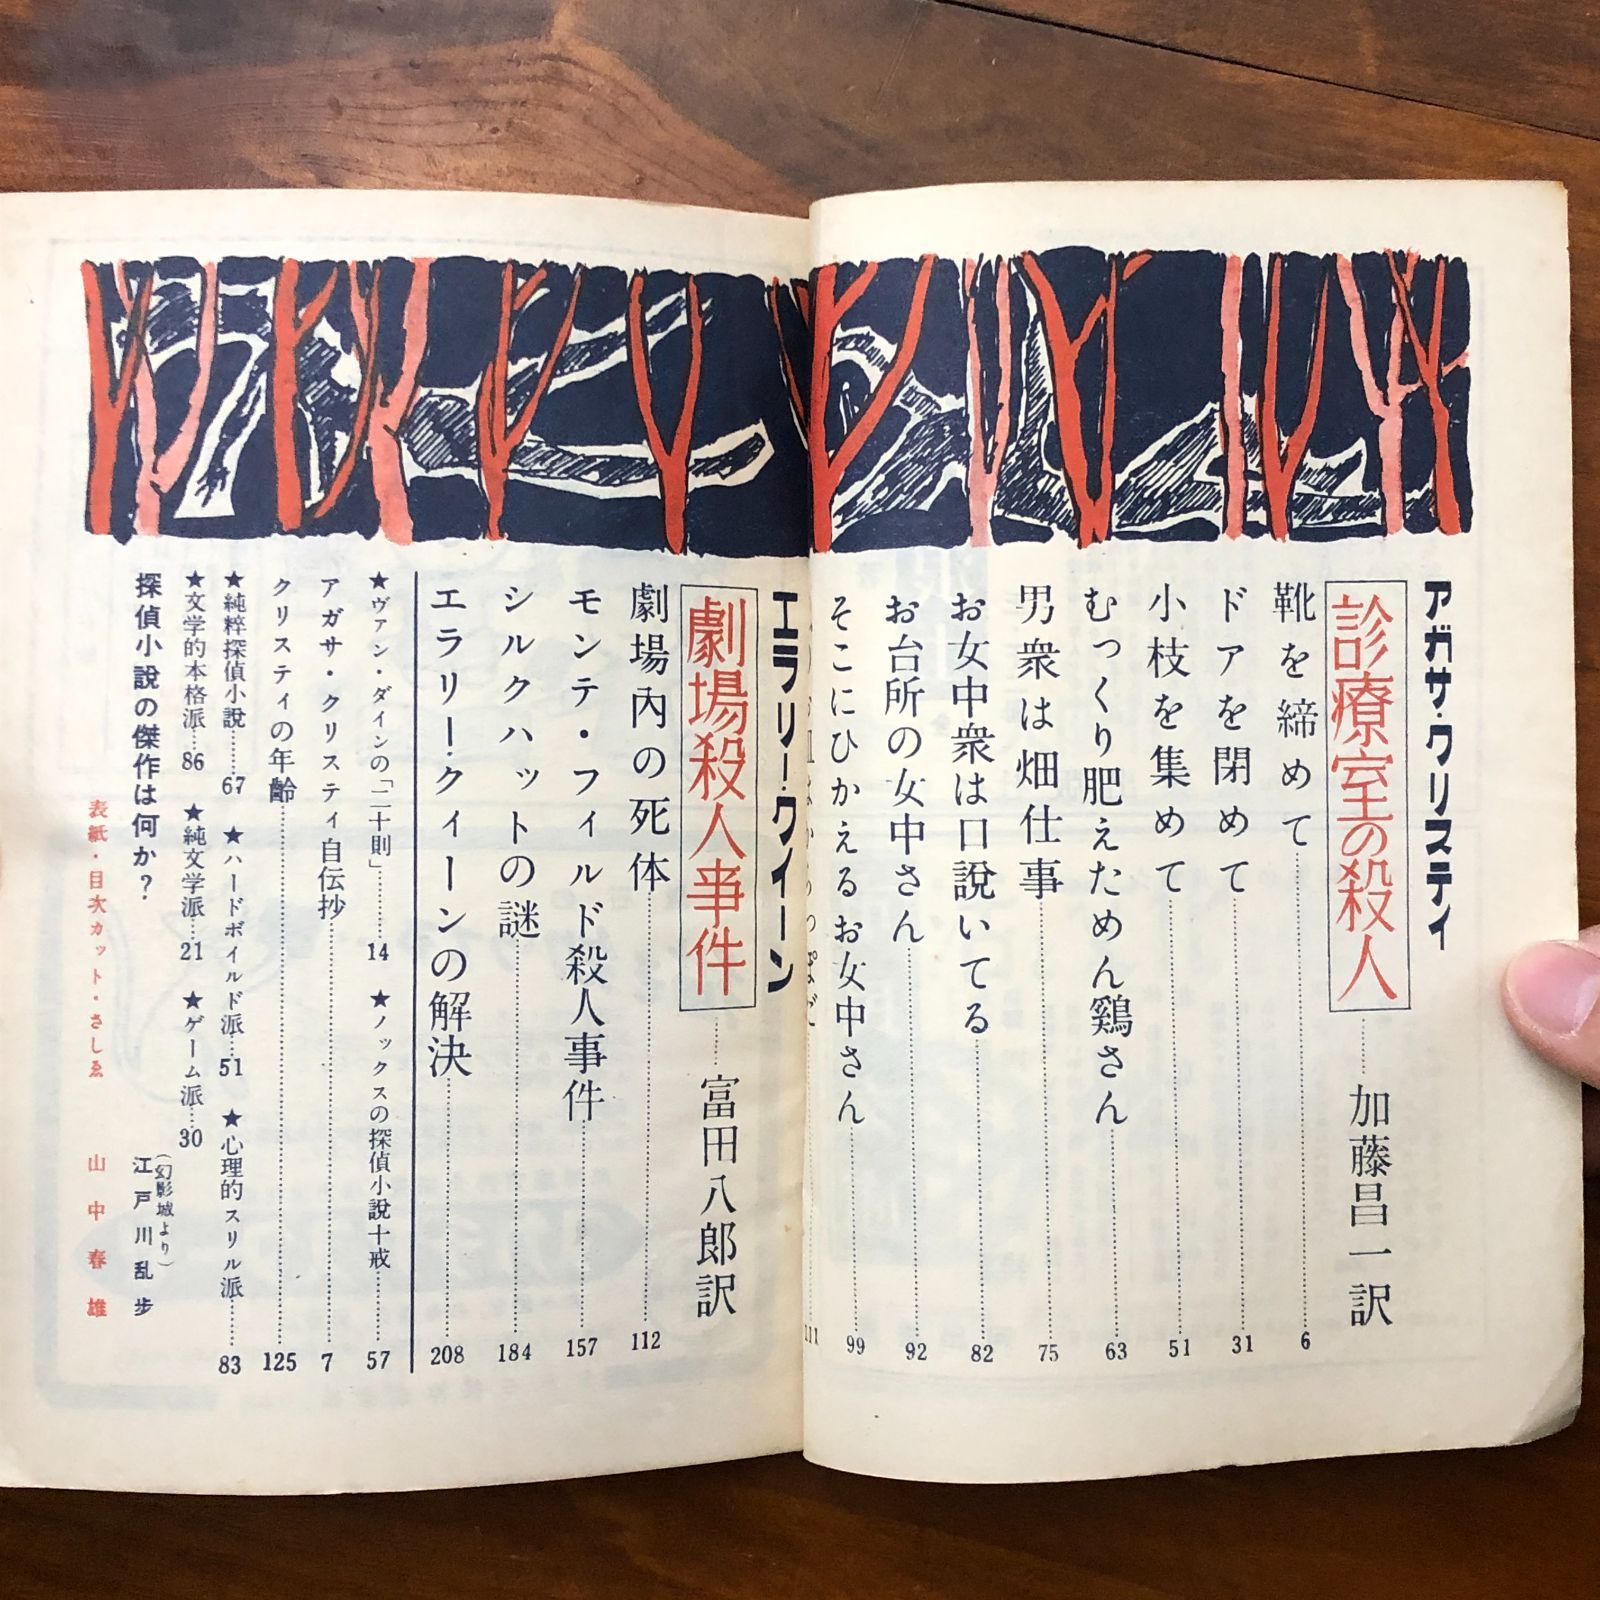 アガサ・クリスティ
診療室の殺人……加藤昌一訳
靴を締めて……6
ドアを閉めて……31
小枝を集めて……51
むっくり肥えためん鶏さん……63
男衆は畑仕事……75
お女中衆は口説いてる……82
お台所の女中さん……92
そこにひかえるお女中さん……99
エラリー・クイーン
劇場殺人事件……富田八郎訳
劇場內の死体……112
モンテ・フィルド殺人事件……157
シルクハットの謎……184
エラリー・クィーンの解決……208
★ヴァン・ダインの「二十則」……14 ★ノックスの探偵小説十戒……57
アガサ・クリスティ自伝抄……7
クリスティの年齡……125
★純粹探偵小説……67 ★ハードボイルド派…51 ★心理的スリル派……83
★文学的本格派……86 ★純文学派……21 ★ゲーム派…30
探偵小説の傑作は何か？ (幻影城より) 江戸川乱歩
表紙・目次カット・さしゑ 山中春雄